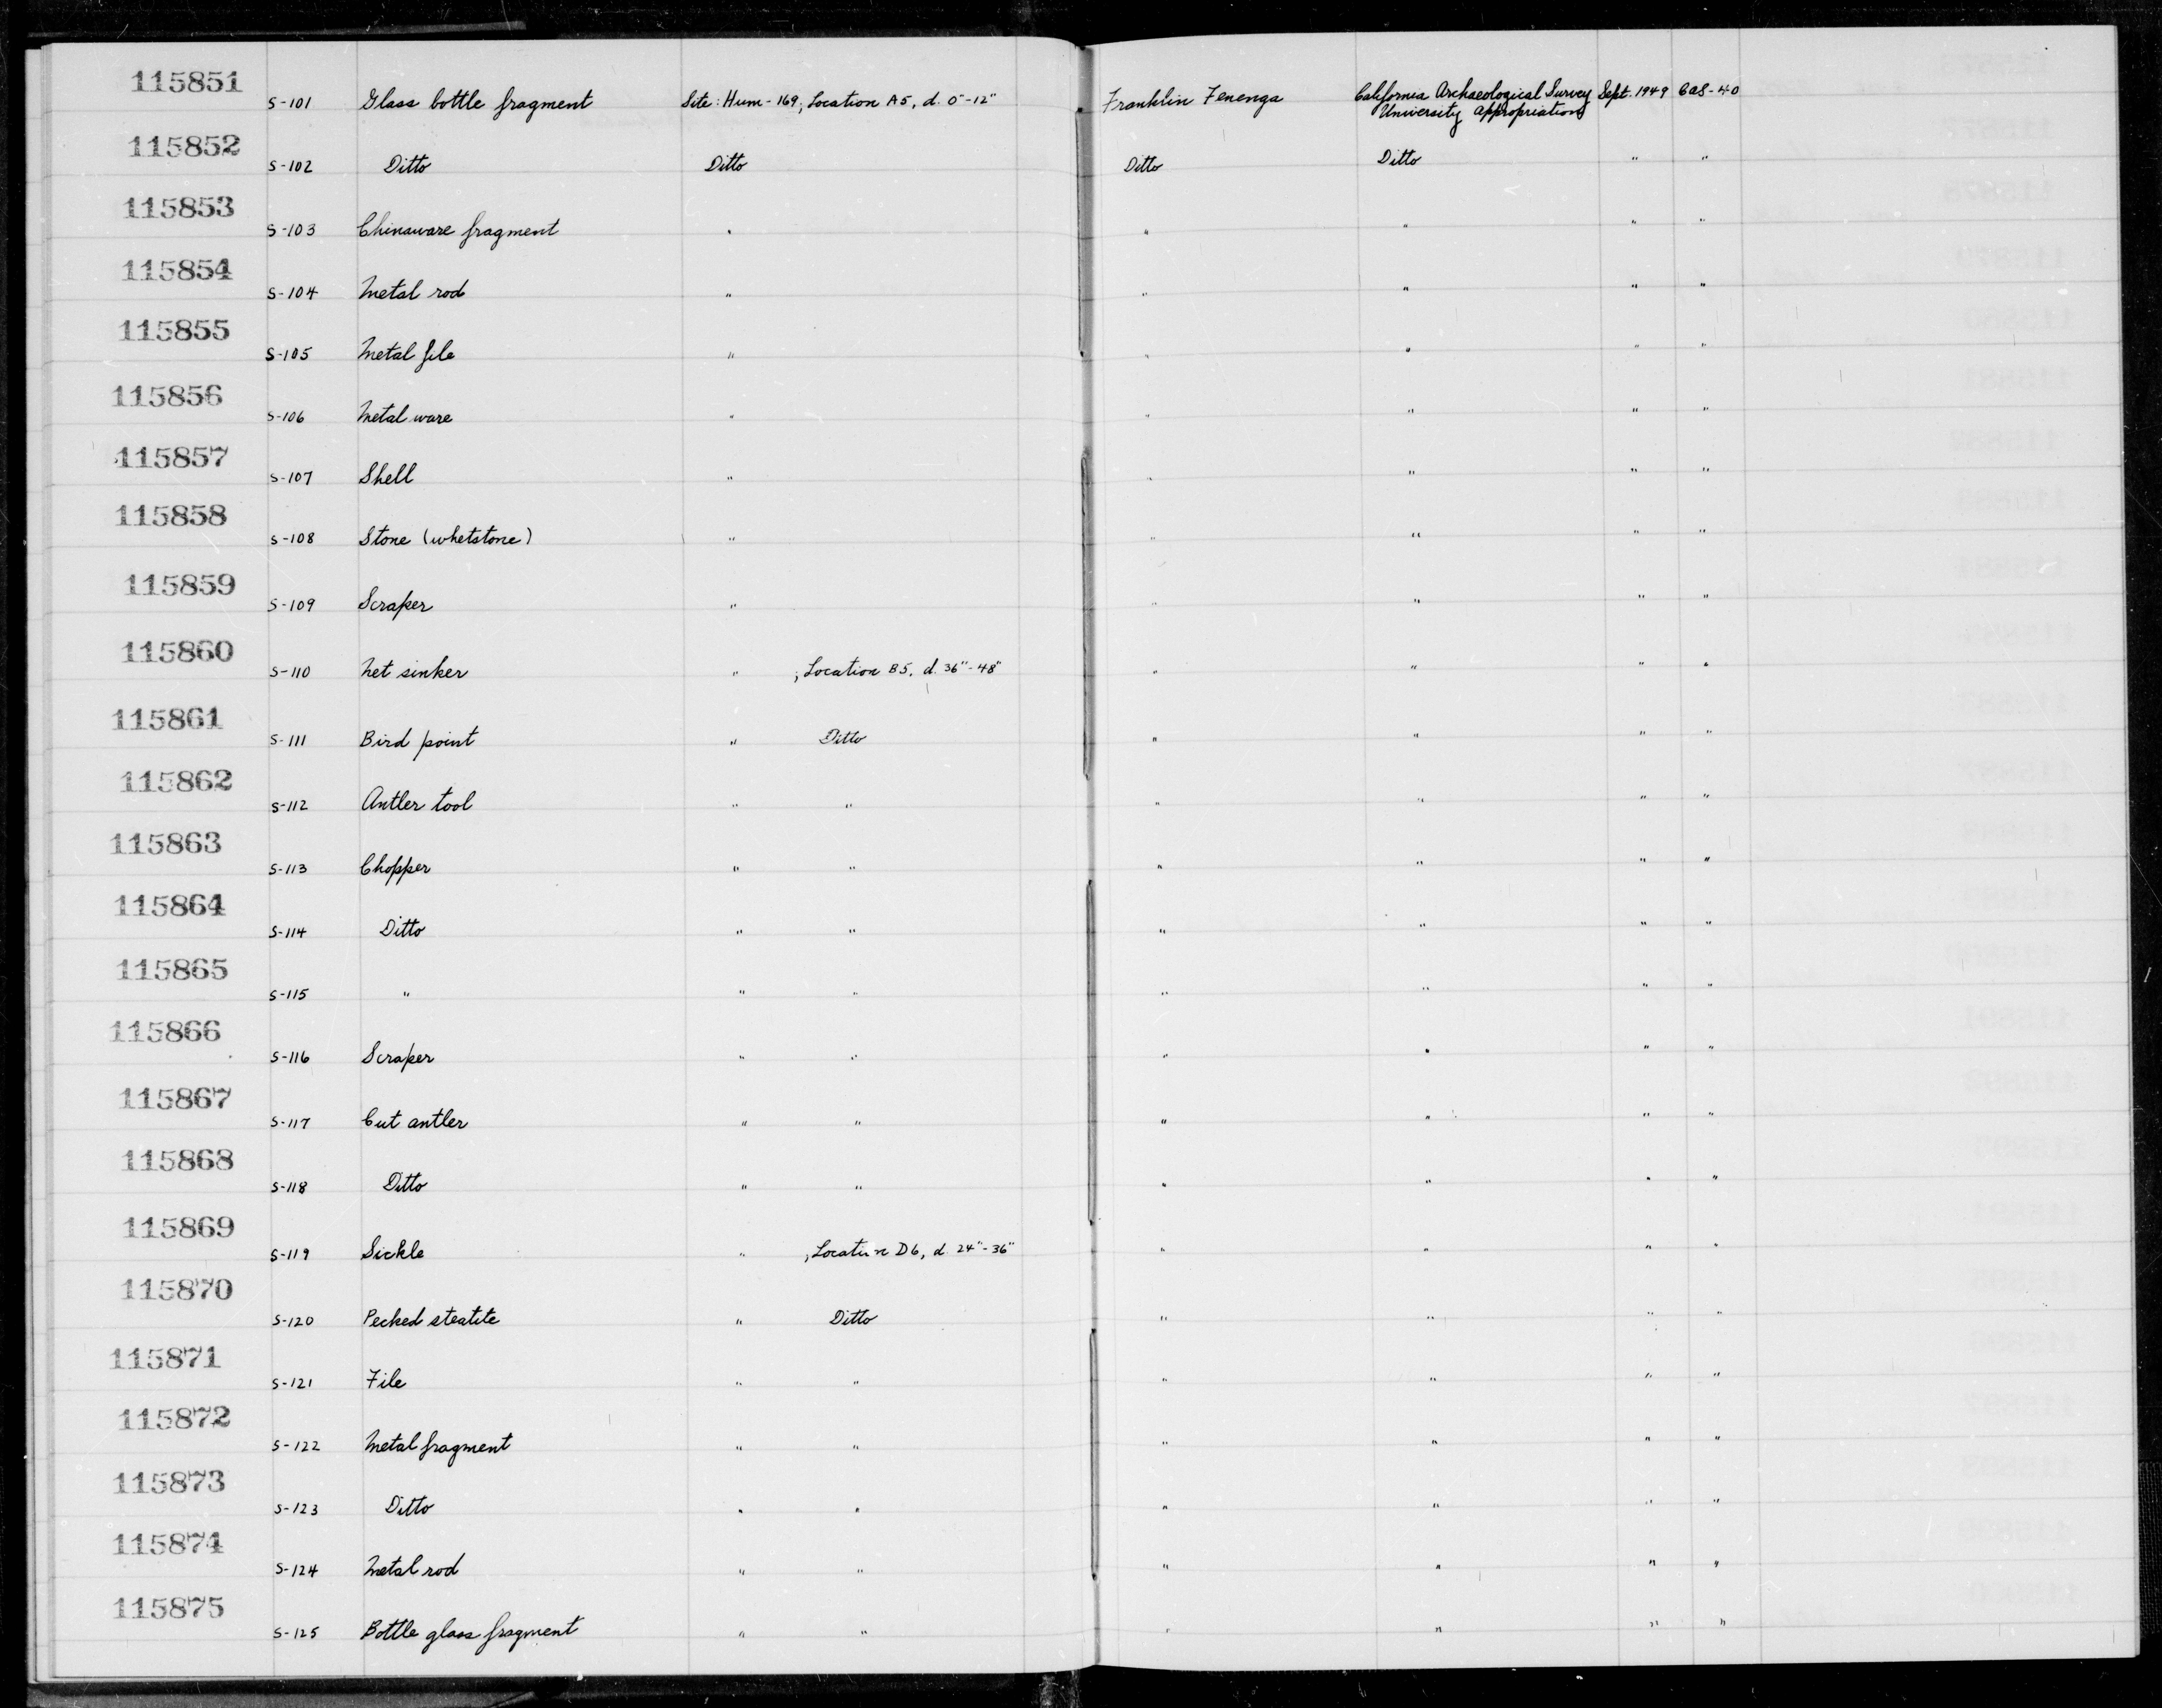 115851 S-101 Glass bottle fragment Site: Hum-169, Location A5, d. 0"-12" Franklin Fenenga California Archaeological Survey Sept. 1949 CAS-40
University Appropriations
115852 S-102 Ditto Ditto Ditto Ditto " "
115853 S-103 Chinaware fragment " " " " "
115854 S-104 Metal rod " " " " "
115855 S-105 Metal file " " " " "
115856 S-106 Metal ware " " " " "
115857 S-107 Shell " " " " "
115858 S-108 Stone (whetstone) " " " " "
115859 S-109 Scraper " " " " "
115860 S-110 Net sinker " ; Location B5, d. 36"-48" " " " "
115861 S-111 Bird point " Ditto " " " "
115862 S-112 Antler tool " " " " " "
115863 S-113 Chopper " " " " " "
115864 S-114 Ditto " " " " " "
115865 S-115 " " " " " " "
115866 S-116 Scraper " " " " " "
115867 S-117 Cut antler " " " " " "
115868 S-118 Ditto " " " " " "
115869 S-119 Sickle " ; Location D6, d. 24"-36" " " " "
115870 S-120 Pecked steatite " Ditto " " " "
115871 S-121 File " " " " " "
115872 S-122 Metal fragment " " " " " "
115873 S-123 Ditto " " " " " "
115874 S-124 Metal rod " " " " " "
115875 S-125 Bottle glass fragment " " " " " "